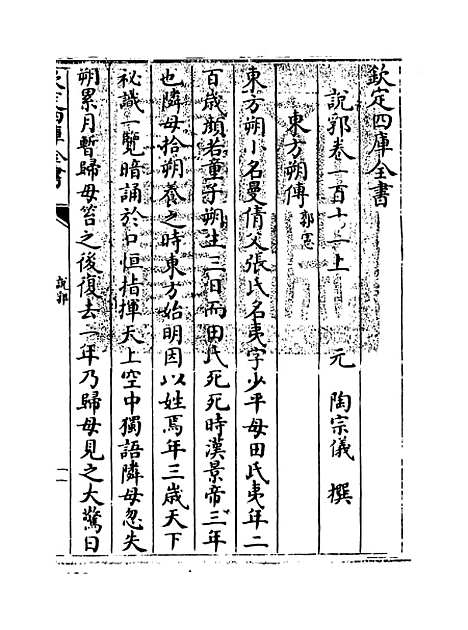 欽定四庫全書
說郛卷一百十一上
元 陶宗儀 撰
東方朔傳 郭憲
東方朔小名曼倩父張氏名夷字少平母田氏夷年二
百歲顏若童子朔生三日而田氏死死時漢景帝三年
也隣母拾朔養之時東方始明因以姓焉年三歲天下
秘䜟一覽暗誦於口恒指揮天上空中獨語隣母忽失
朔累月暫歸母笞之後復去一年乃歸母見之大驚曰
說郛